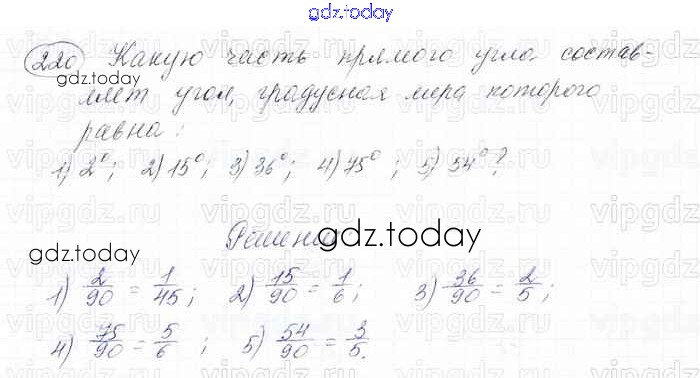 gdz.today
220 Какую часть прямого угла состав-
gdz.today
ляет угол, градусная мера которого
равна:
1) 2°; 2) 15°; 3) 36°; 4) 75°; 5) 54°?
Решение
gdz.today
gdz.today
1) 2/90 = 1/45; 2) 15/90 = 1/6; 3) 36/90 = 2/5;
4) 75/90 = 5/6; 5) 54/90 = 3/5.